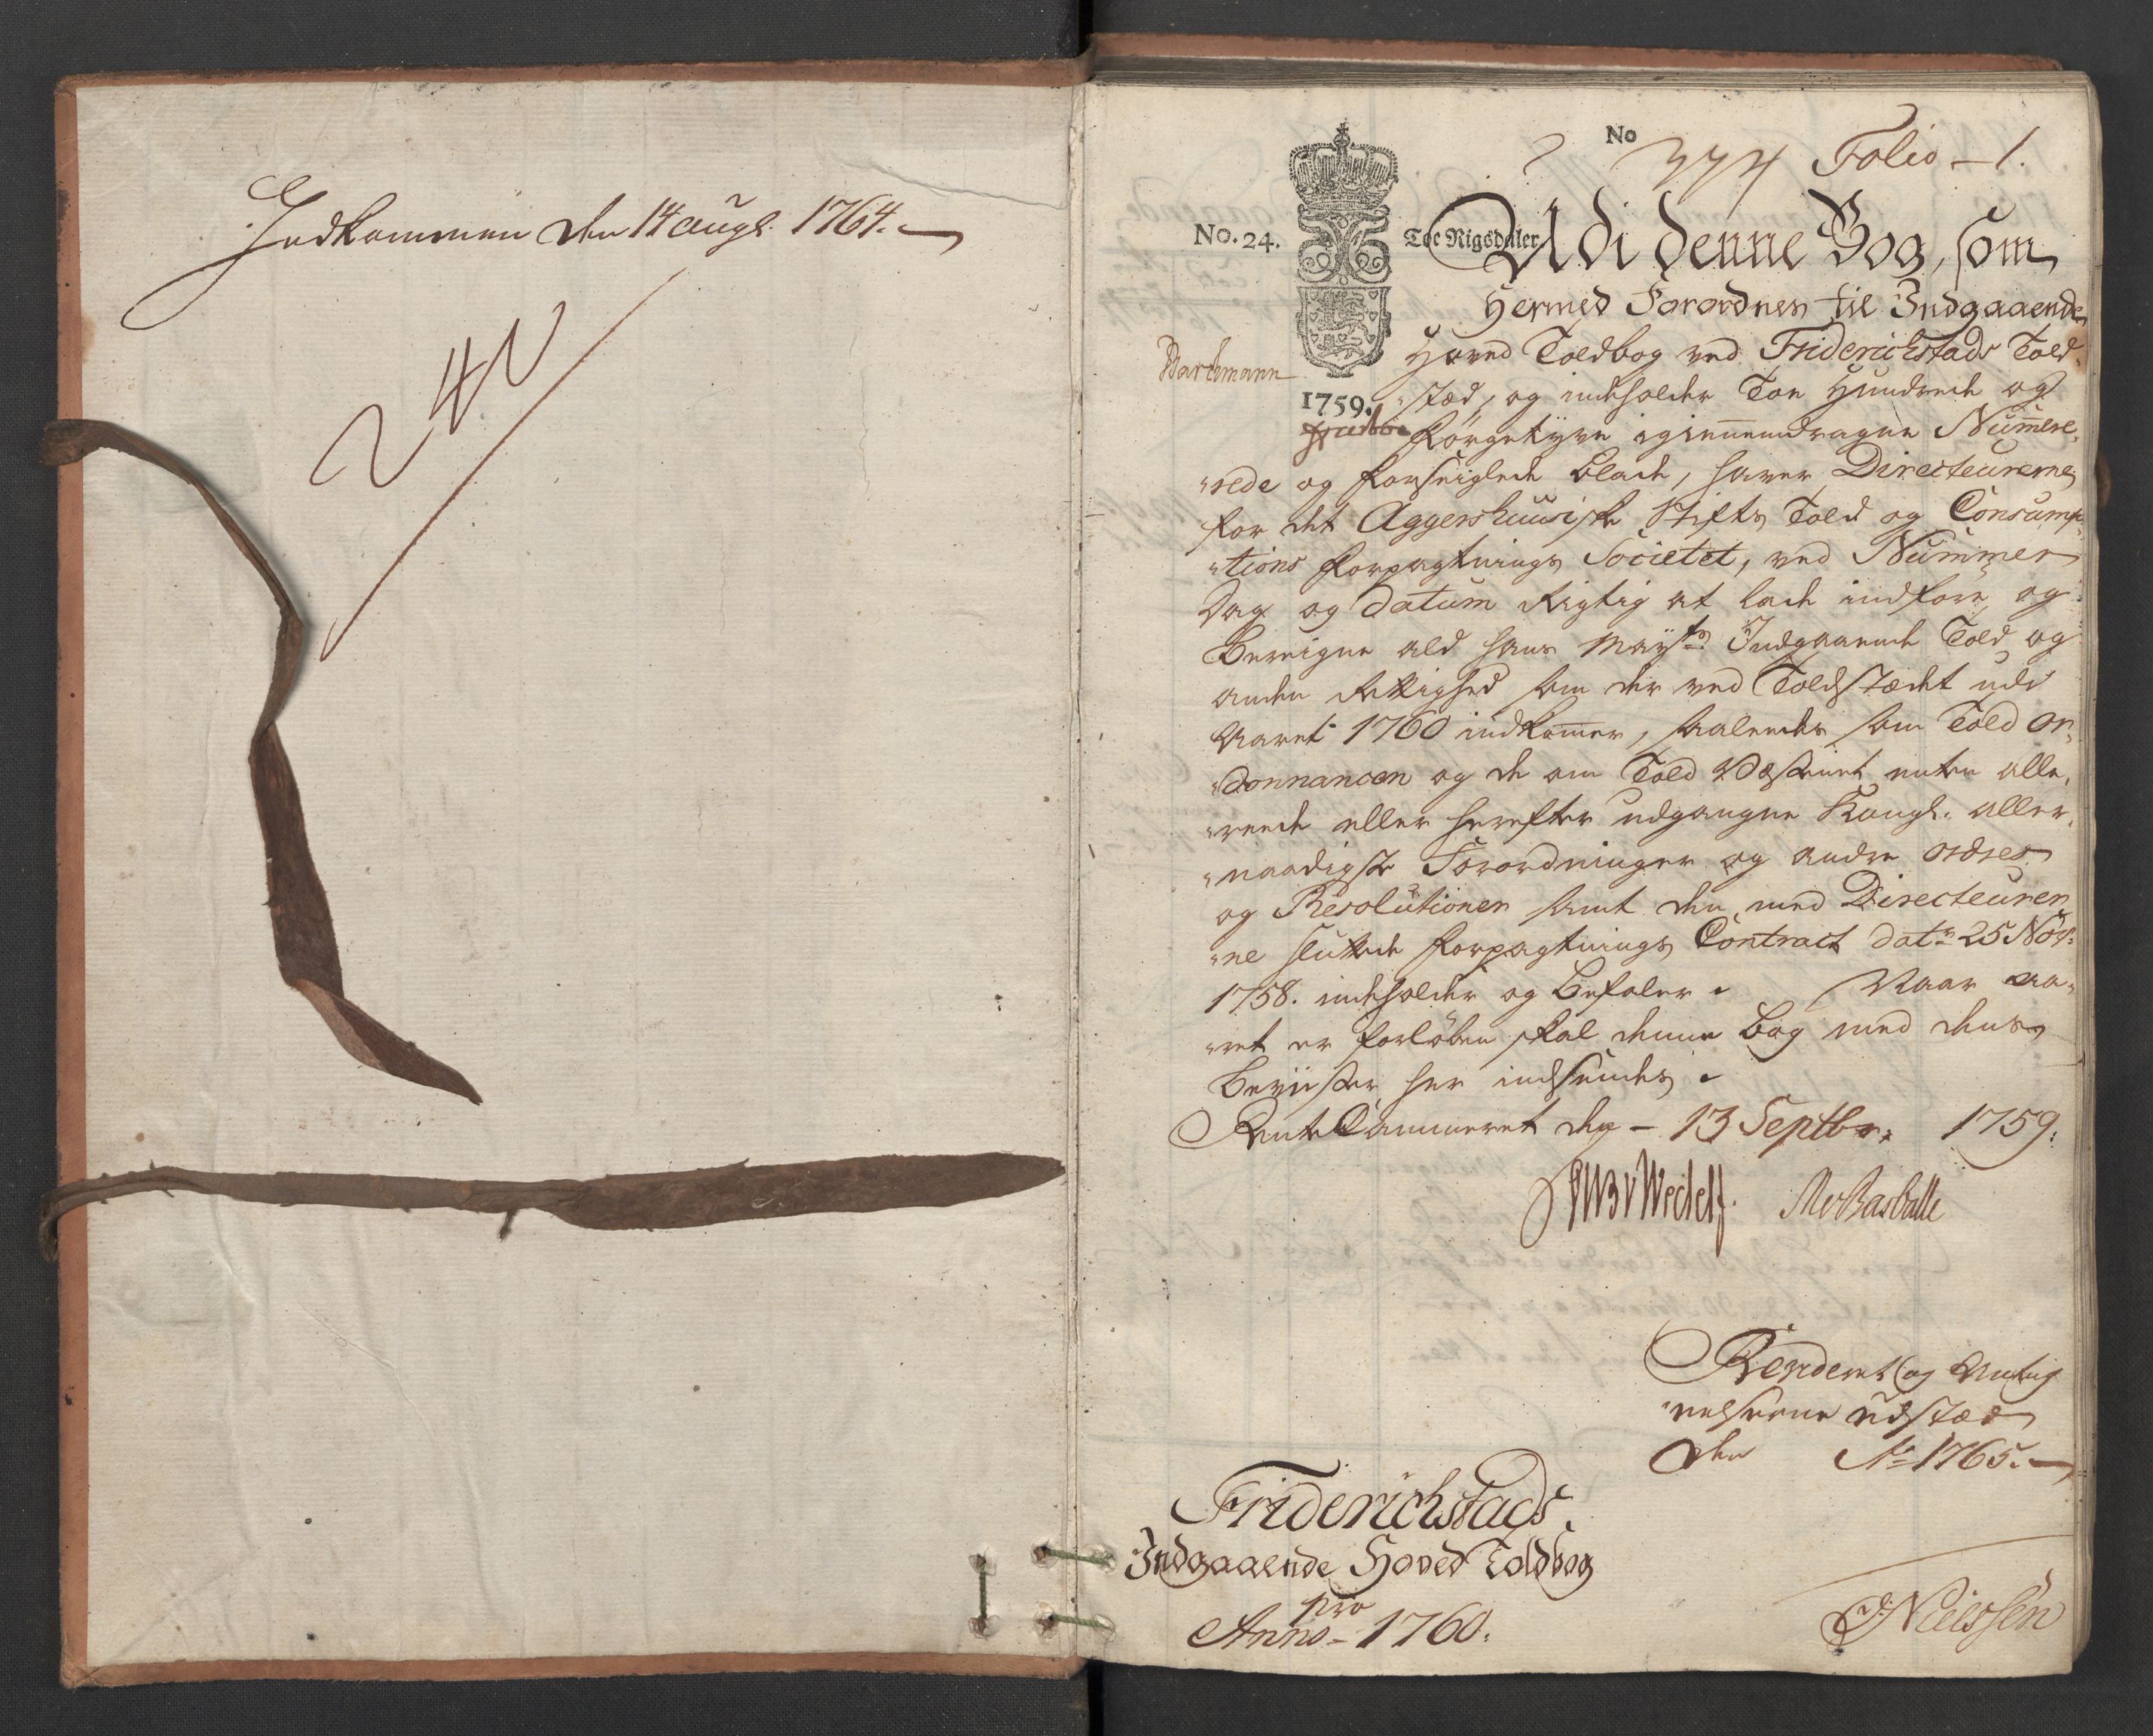 Indkommen den 14 augl. 1764.
No
374 Folio - 1.
No. 24.
Toe Rigsdaler
Udi denne Bog, som
Hermed Forordnes til Indgaaende
Hoved Toldbog ved Friderichstads Told¬
1759.
stæd, og indeholder Toe Hundrede og
førgetyve igiennemdragne Numme¬
rede og forseiglede blade, haver Directeurerne
for det Aggershuusiske Stifts Told og Consump¬
tions Forpagtnings Societet, ved Nummer
Dag og Datum Rigtig at lade indføre og
Bereigne ald Hans Mayts. Indgaaende Told og
anden Rettighed som der ved Toldstædet udi
Aaret 1760 indkommer, saaledes som Told Or¬
donnancen og de om Told Væsenet enten alle¬
reede eller herefter udgangne Kongl. aller¬
naadigste Forordninger og andre Ordres
og Resolutioner samt den med Directeurer¬
ne sluttede Forpagtnings Contract dat. 25 Nov.
1758. indeholder og befaler. Naar Aa¬
ret er forløben skal denne Bog med dens
Beviiser her indsendes.
RenteCammeret den - 13 Septbr. 1759.
Rendert og Antig¬
nelserne udstæd
den Ao 1765.
Friderichstads
Indgaaende Hoved Toldbog
pro
Anno - 1760.
Nielssen